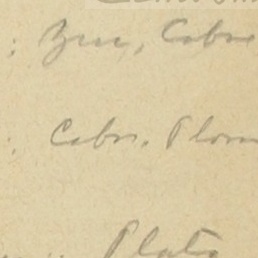 : Zinc, Cobre
: Cobre. Plom
Plata